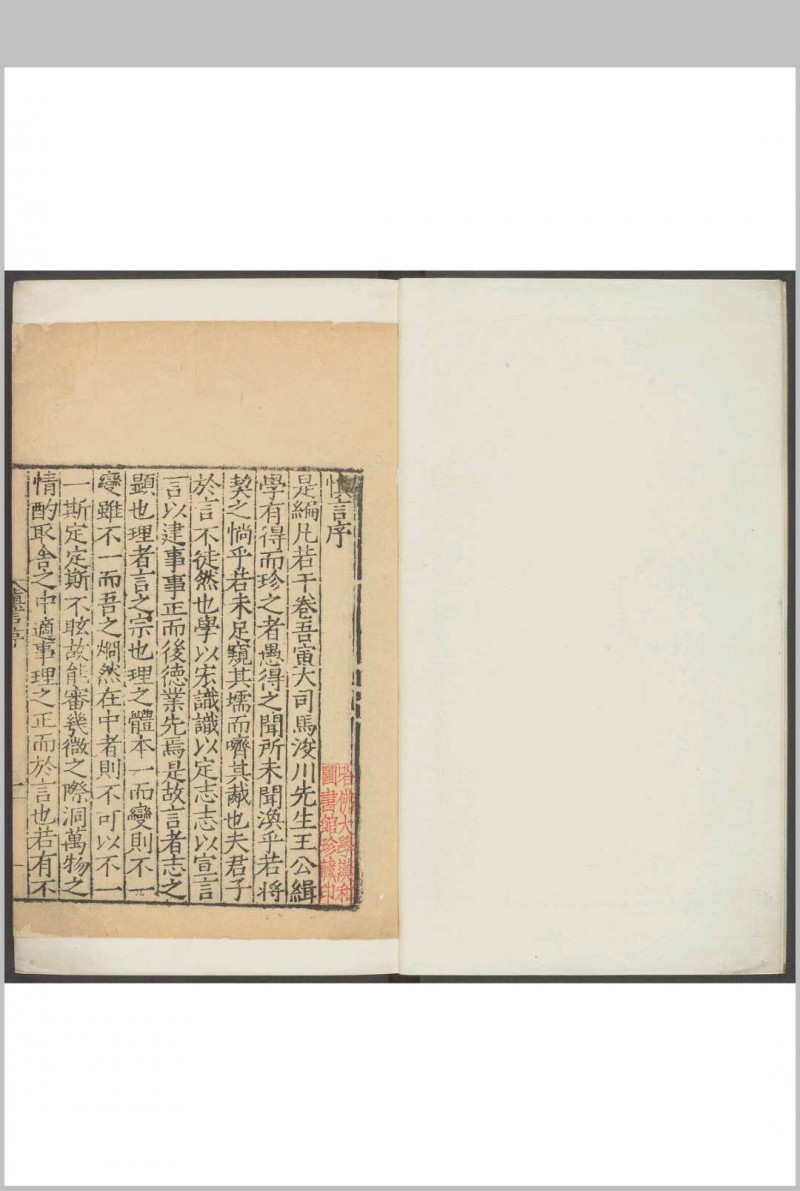 慎言序
是編凡若干卷吾寅大司馬浚川先生王公緝
學有得而珍之者愚得之聞所未聞渙乎若將
契之惝乎若未足窺其壖而嚌其胾也夫君子
於言不徒然也學以宏識識以定志志以宣言
言以建事事正而後德業先焉是故言者志之
顯也理者言之宗也理之體本一而變則不一
變雖不一而吾之烱然在中者則不可以不一
一斯定定斯不眩故能審幾微之際洞萬物之
情酌取舍之中適事理之正而於言也若有不
慎言序
一
哈佛大學漢和
圖書館珍藏印